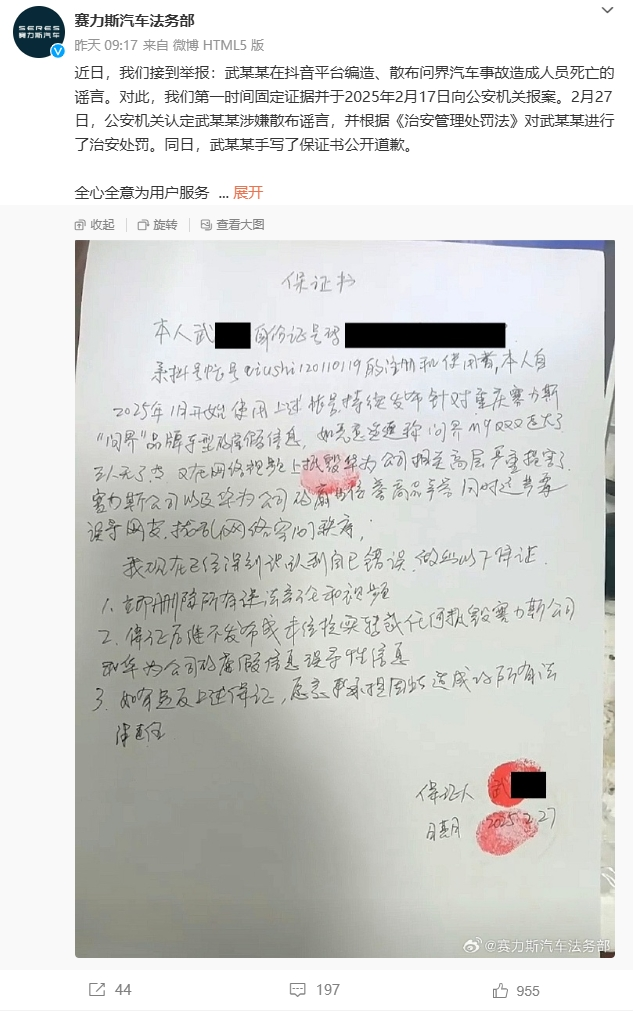 赛力斯汽车法务部
昨天 09:17 来自 微博 HTML5 版
近日，我们接到举报：武某某在抖音平台编造、散布问界汽车事故造成人员死亡的
谣言。对此，我们第一时间固定证据并于2025年2月17日向公安机关报案。2月27
日，公安机关认定武某某涉嫌散布谣言，并根据《治安管理处罚法》对武某某进行
了治安处罚。同日，武某某手写了保证书公开道歉。
全心全意为用户服务 ... 展开
收起 旋转 查看大图
SERES
赛力斯汽车
保证书
本人武 身份证号码
系抖号帐号qiushi120110119的注册和使用者,本人自
2025年1月开始使用上述帐号持续发布针对重庆赛力斯
"问界"品牌车型的虚假信息，如恶意造谣称问界m9
三人死了, 又在网络视频上抵毁华为公司相关高层严重损害了
赛力斯公司以及华为公司的 商品声誉同时这
误导网友,扰乱网络空间秩序；
我现在已经深刻认识到自己错误,做出以下保证.
1. 立即删除所有违法言论和视频
2. 保证后继不发布或未经核实 任何抵毁赛力斯公司
和华为公司的虚假信息误导性信息
3. 如有违反上述保证，愿意承担因此造成的所有法
律责任
保证人 武
日期 2025.2.27
@赛力斯汽车法务部
44 197 955